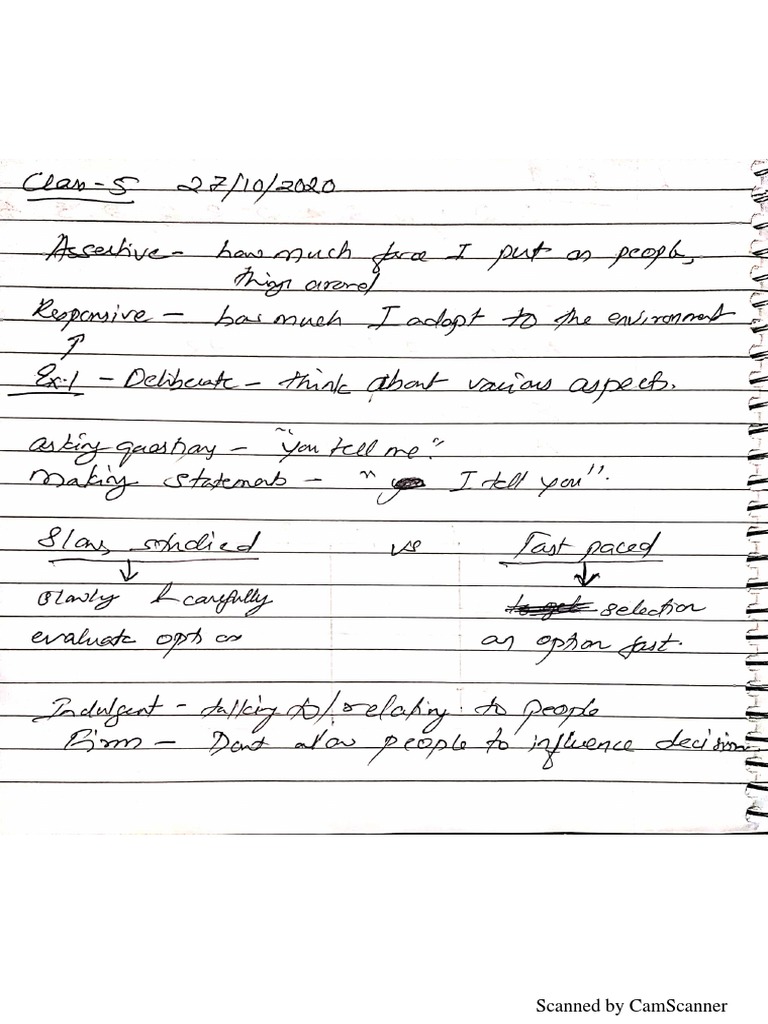 Class-5 27/10/2020
Assertive - how much force I put on people,
things around
Responsive - how much I adapt to the environment
Ex.1 - Deliberate - think about various aspects.
asking question - "you tell me"
making statements - " I tell you".
Slow, studied vs Fast paced
slowly & carefully selection
evaluate option an option fast.
Indulgent - talking to/relating to people
Firm - Dont allow people to influence decision
Scanned by CamScanner